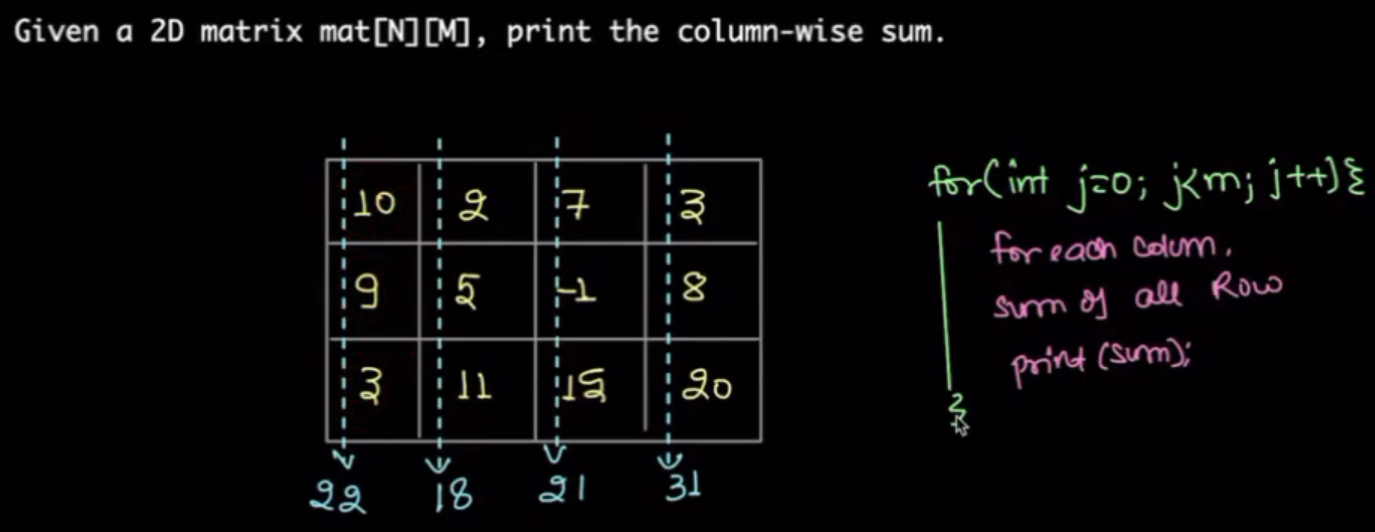 Given a 2D matrix mat[N][M], print the column-wise sum.
10 2 7 3
9 5 -1 8
3 11 15 20
22 18 21 31
for(int j=0; j<m; j++){
for each colum,
sum of all Row
print(sum);
}